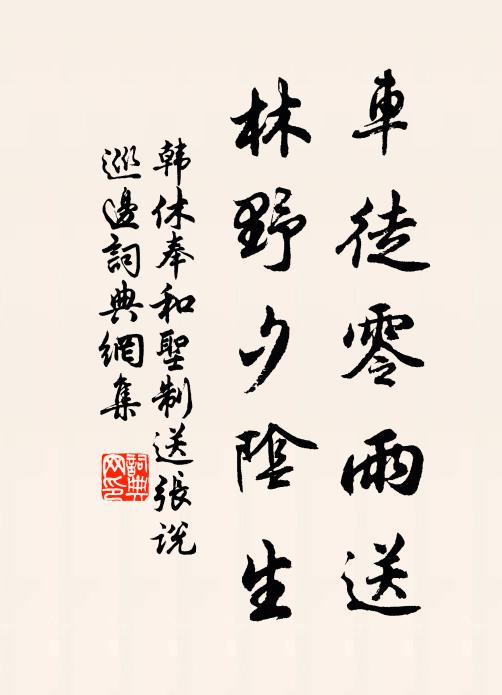 車徒零雨送
林野夕陰生
韩休奉和聖制送張说
巡邊詞典網集
詞典网印